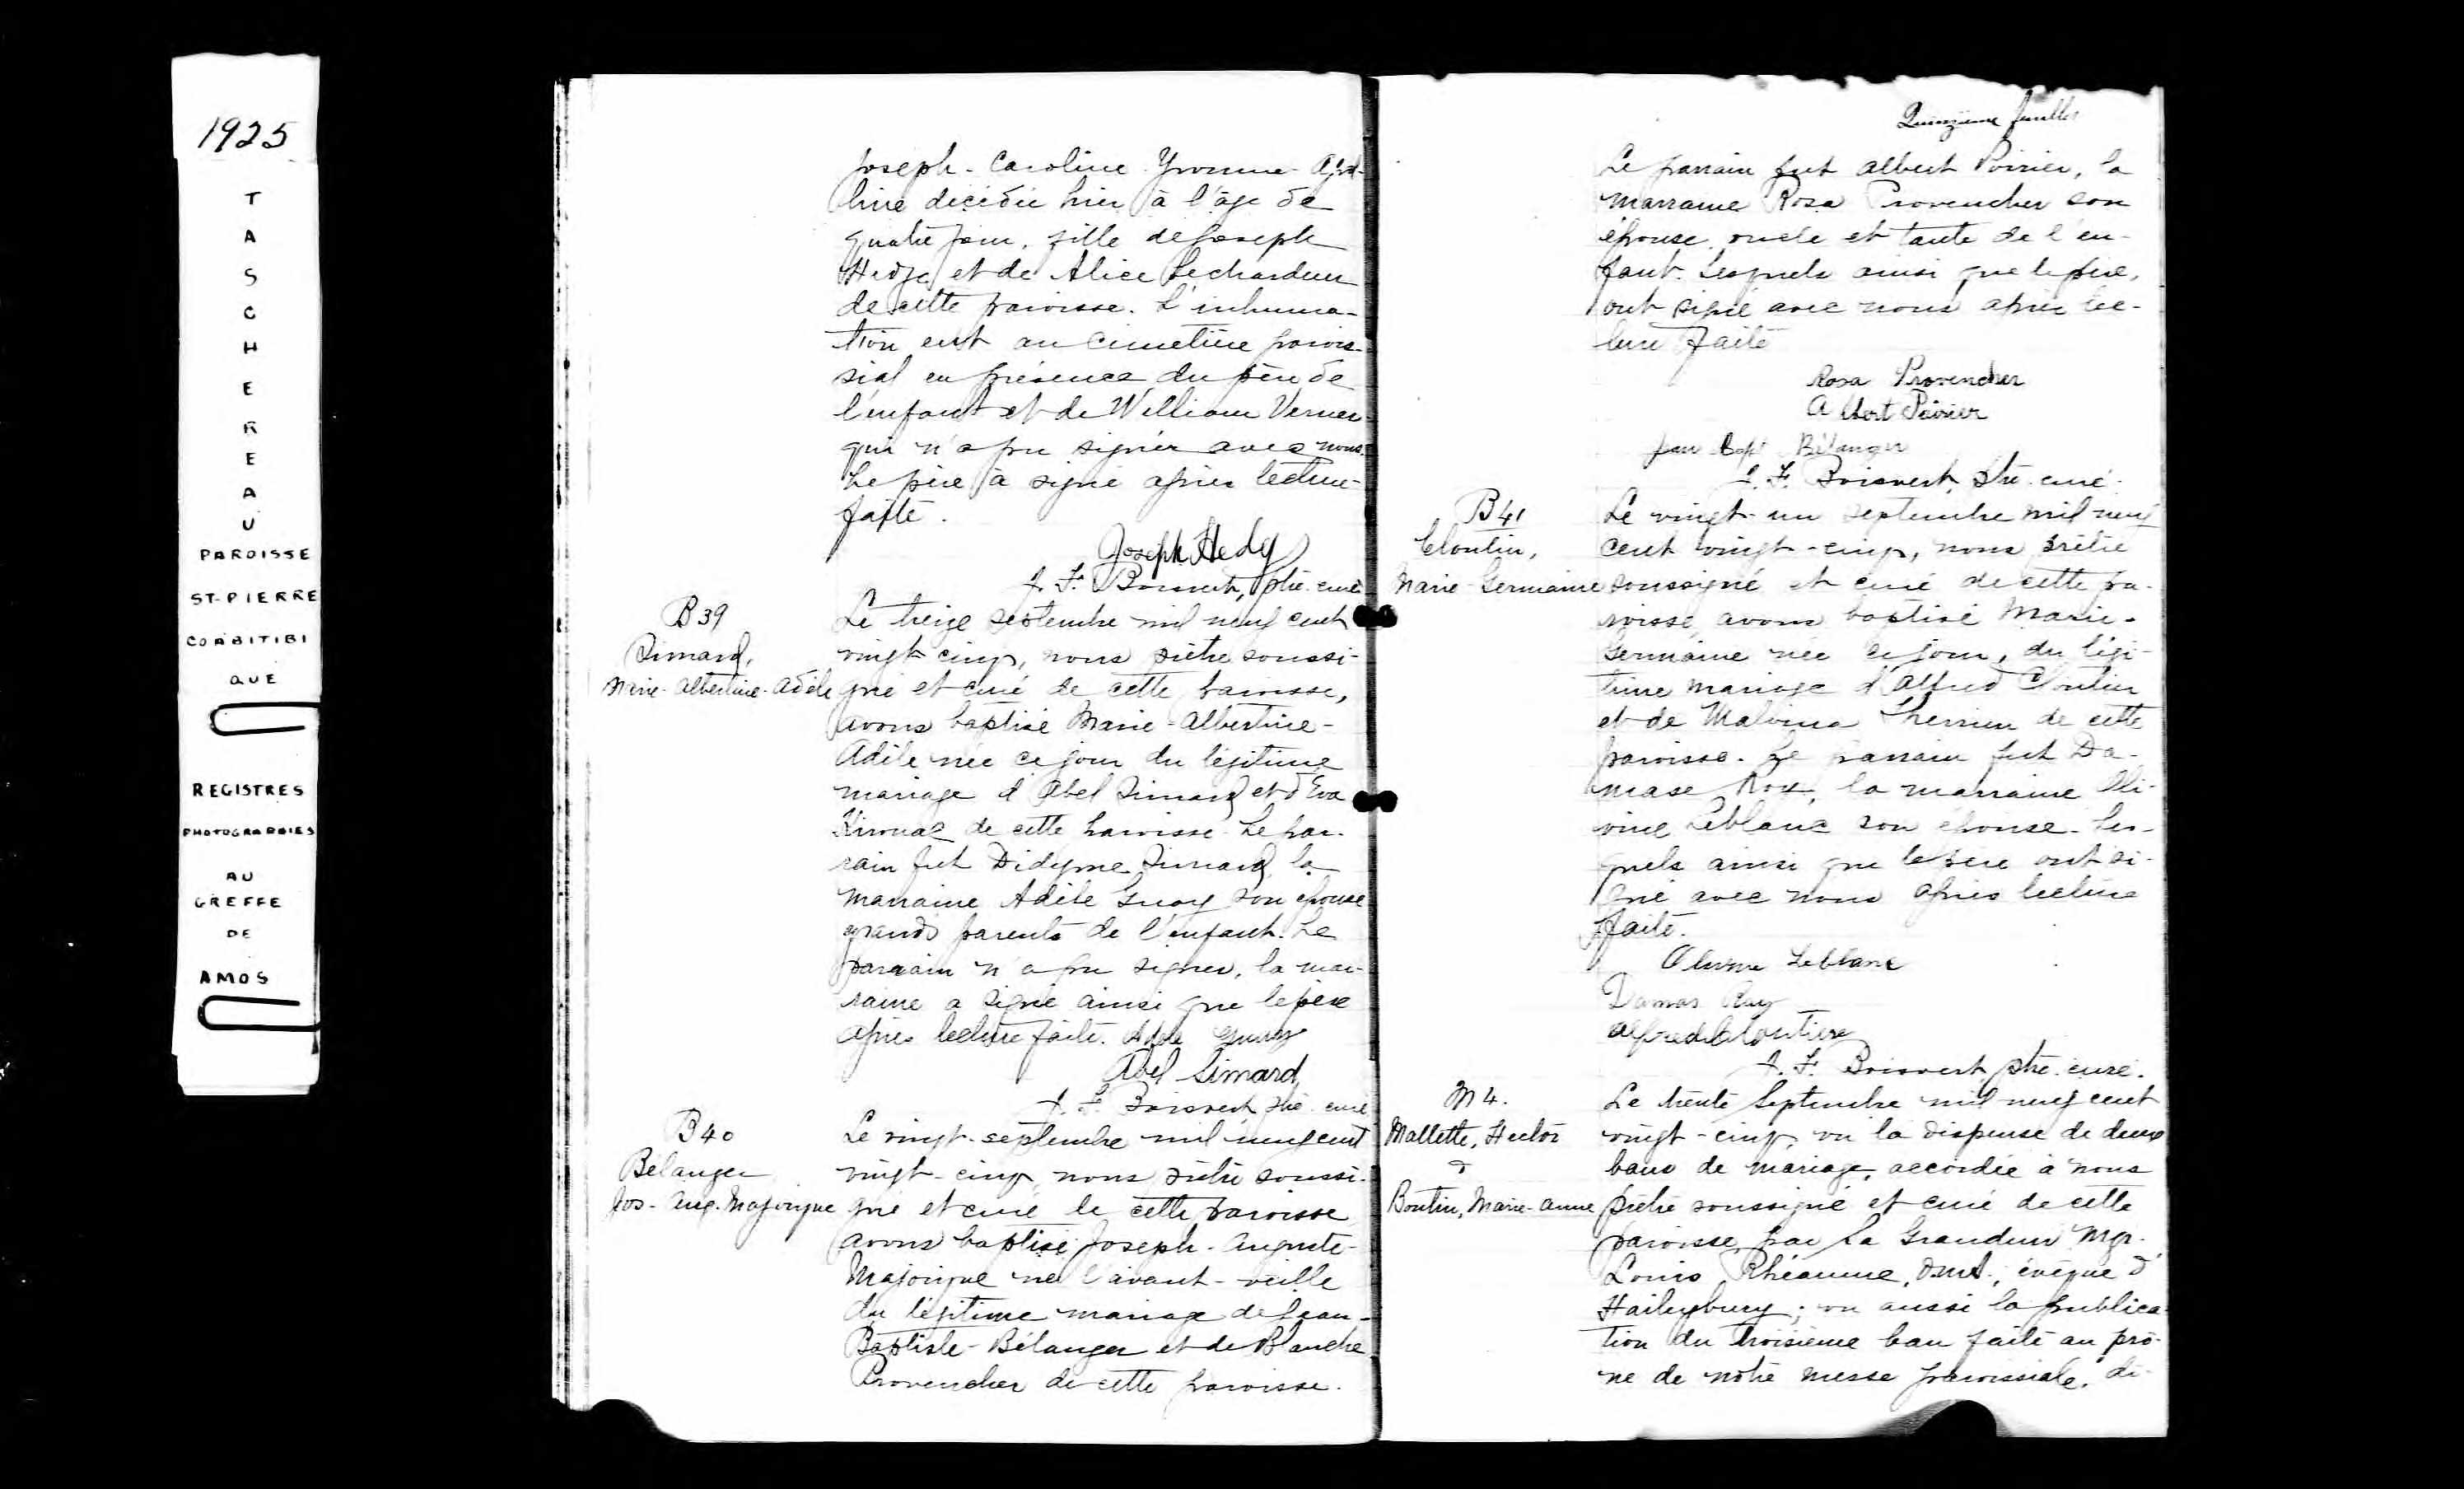 1925
T
A
S
C
H
E
R
E
A
U
PAROISSE
ST-PIERRE
CO ABITIBI
QUE
REGISTRES
PHOTOGRAPHIES
AU
GREFFE
DE
AMOS
Joseph-Caroline Yvonne
décédée hier à l'âge de
quatre jour, fille de Joseph
et de Alice
de cette paroisse. L'inhuma-
tion eut au cimetière parois-
sial en présence du père de
l'enfant et de William
qui n'a pu signer avec nous.
Le père a signé après lecture
faite.
Joseph Hedg
J. F. Boisvert, ptre. curé
B39
Simard,
Marie-Albertine-Adèle
Le treize septembre mil neuf cent
vingt cinq, nous prêtre soussi-
gné et curé de cette paroisse,
avons baptisé Marie-Albertine-
Adèle née ce jour du légitime
mariage d'Abel Simard et d'Eva
Kirouac de cette paroisse. Le par-
rain fut Didyme Simard, la
marraine Adèle Guay son épouse
grands parents de l'enfant. Le
parrain n'a pu signer, la mar-
raine a signé ainsi que le père
après lecture faite. Adele Guay
Abel Simard
J. F. Boisvert ptre. curé
B40
Bélanger
Jos-Aug. Majorique
Le vingt-septembre mil neuf cent
vingt-cinq, nous prêtre soussi-
gné et curé de cette paroisse
avons baptisé Joseph-Auguste-
Majorique né l'avant-veille
du légitime mariage de Jean-
Baptiste-Bélanger et de Blanche
Provencher de cette paroisse.
Quinzième feuillet
Le parrain fut Albert Poirier, la
marraine Rosa Provencher son
épouse, oncle et tante de l'en-
fant. Lesquels ainsi que le père,
ont signé avec nous après lec-
ture faite
Rosa Provencher
Albert Poirier
Jean Bapt Bélanger
J. F. Boisvert, ptre. curé.
B41
Cloutier,
Marie-Germaine
Le vingt-un septembre mil neuf
cent vingt-cinq, nous prêtre
soussigné et curé de cette pa-
roisse, avons baptisé Marie-
Germaine née ce jour, du légi-
time mariage d'Alfred Cloutier
et de Malvina Therrien de cette
paroisse. Le parrain fut Da-
mase Roy, la marraine Oli-
vine Leblanc son épouse. Les-
quels ainsi que le père ont si-
gné avec nous après lecture
faite.
Olivine Leblanc
Damas Roy
Alfred Cloutier
J. F. Boisvert, ptre. curé.
M4.
Mallette, Hector
&
Boutin, Marie-Anne
Le trente Septembre mil neuf cent
vingt-cinq, vu la dispense de deux
bans de mariage, accordée à nous
prêtre soussigné et curé de cette
paroisse, par Sa Grandeur Mgr.
Louis Rhéaume, o.m.i., évêque d'
Haileybury; vu aussi la publica-
tion du troisième ban faite au prô-
ne de notre messe paroissiale, di-